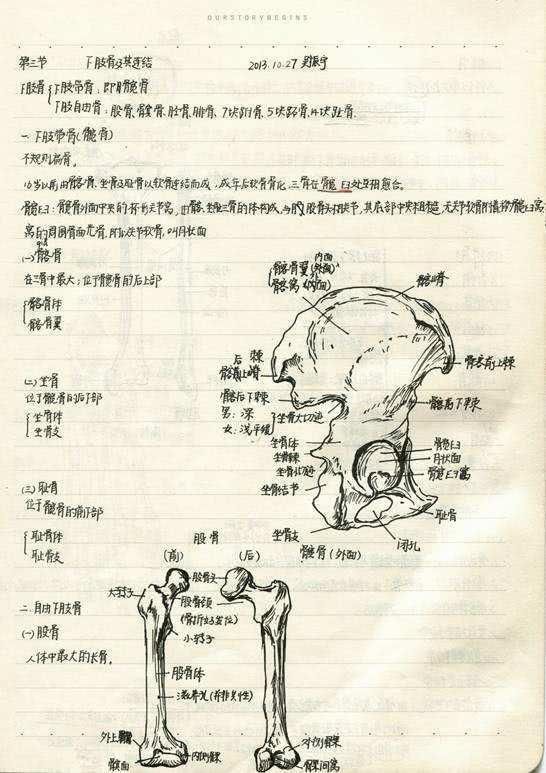 OURSTORYBEGINS
第三节 下肢骨及其连结 2013.10.27
下肢骨
下肢带骨：即髋骨
下肢自由骨：股骨,髌骨,胫骨,腓骨,7块跗骨,5块跖骨,14块趾骨.
一.下肢带骨(髋骨)
不规则扁骨.
16岁以前由髂骨.坐骨及耻骨以软骨连结而成.成年后软骨骨化,三骨在髋臼处互相愈合.
髋臼：髋骨外面中央的
窝的周围骨面光滑,附以关节软骨,叫月状面
(一)髂骨
在三骨中最大;位于髋骨的后上部
髂骨体
髂骨翼
内面
髂骨翼(外面)
髂窝(内面)
髂嵴
后
髂前上棘
髂后下棘
男：深
女：浅平缓
坐骨大切迹
(二)坐骨
位于髋骨的后下部
坐骨体
坐骨支
坐骨体
坐骨棘
坐骨小切迹
坐骨结节
髋臼
月状面
髋臼窝
耻骨
坐骨支
闭孔
髋骨(外面)
(三)耻骨
位于髋骨的前下部
耻骨体
耻骨支
股骨
(前) (后)
二.自由下肢骨
(一)股骨
人体中最大的长骨.
股骨头
大转子
股骨颈
(骨折好发位)
小转子
股骨体
滋养孔
外上髁
髌面
内侧髁
外侧髁
髁间窝